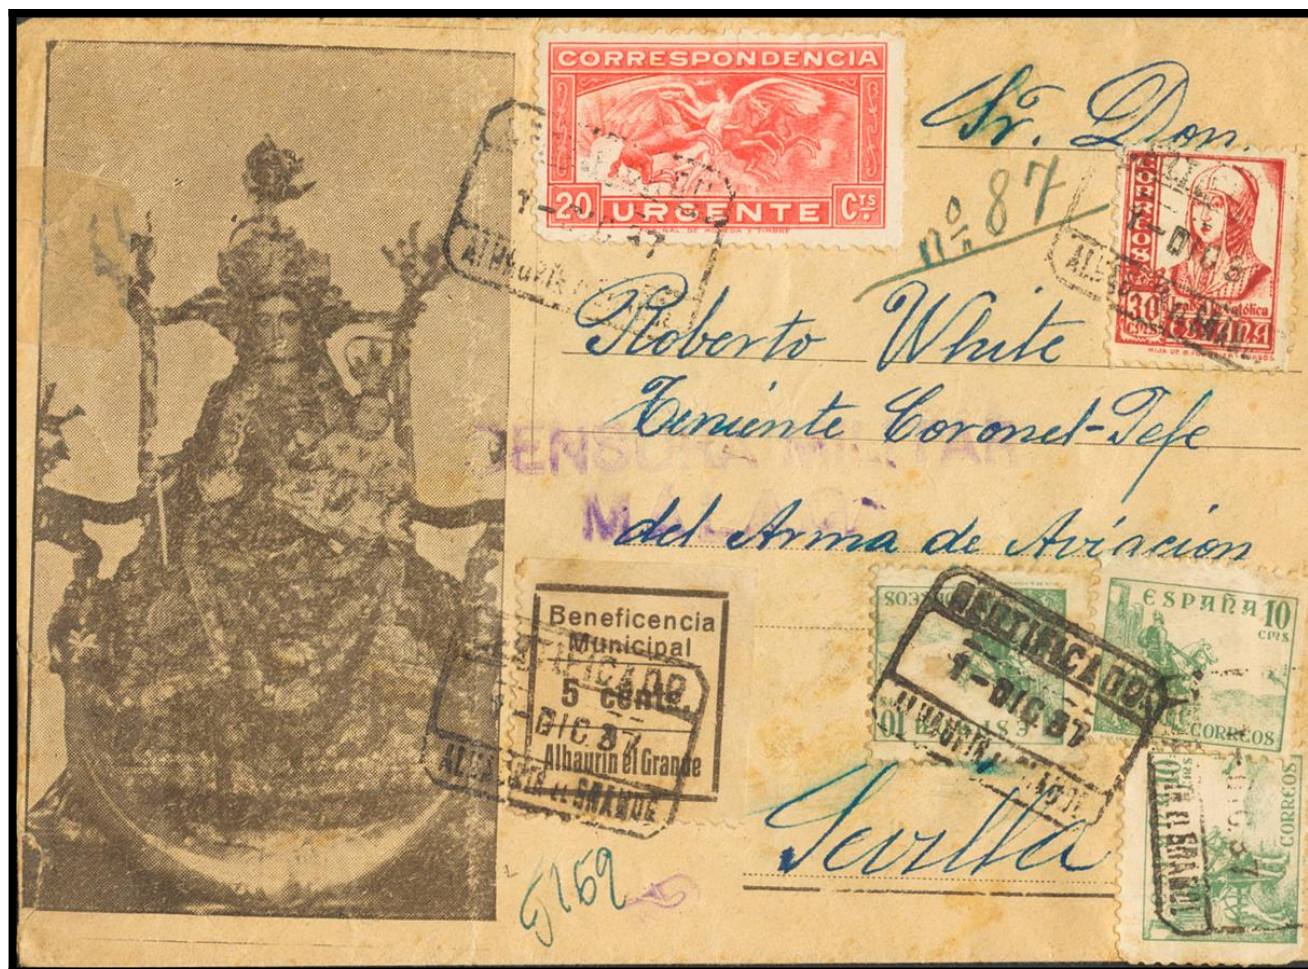 CORRESPONDENCIA
20 URGENTE CTS
Sr. Don.
nº 87
CORREOS
30 CTS ESPAÑA
1-DIC 37
ALHAURIN
Roberto White
Teniente Coronel-Jefe
CENSURA MILITAR
MALAGA
del Arma de Aviación
Beneficencia
Municipal
5 cents.
Alhaurin el Grande
CERTIFICADO
-DIC 37
ALHAURIN EL GRANDE
CORREOS
10
CERTIFICADO
1-DIC 37
ALHAURIN EL GRANDE
ESPAÑA 10
CTMS
CORREOS
CORREOS
10
EL GRANDE
Sevilla
5169